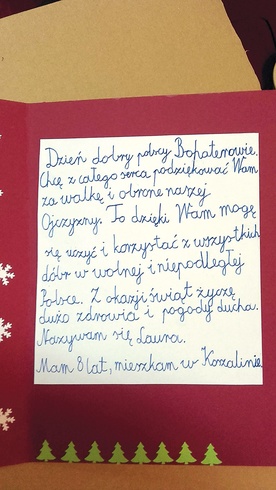 Dzień dobry polscy Bohaterowie.
Chcę z całego serca podziękować Wam
za walkę i obronę naszej
Ojczyzny. To dzięki Wam mogę
się uczyć i korzystać z wszystkich
dóbr w wolnej i niepodległej
Polsce. Z okazji świąt życzę
dużo zdrowia i pogody ducha.
Nazywam się Laura.
Mam 8 lat, mieszkam w Koszalinie.